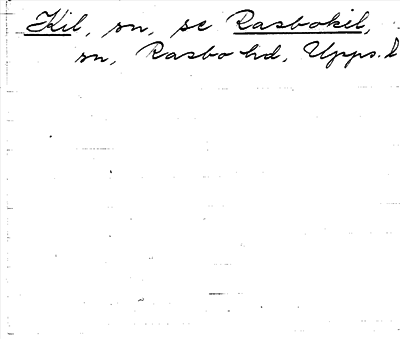 Kil, sn, se Rasbokil,
sn, Rasbo hd, Upps. l